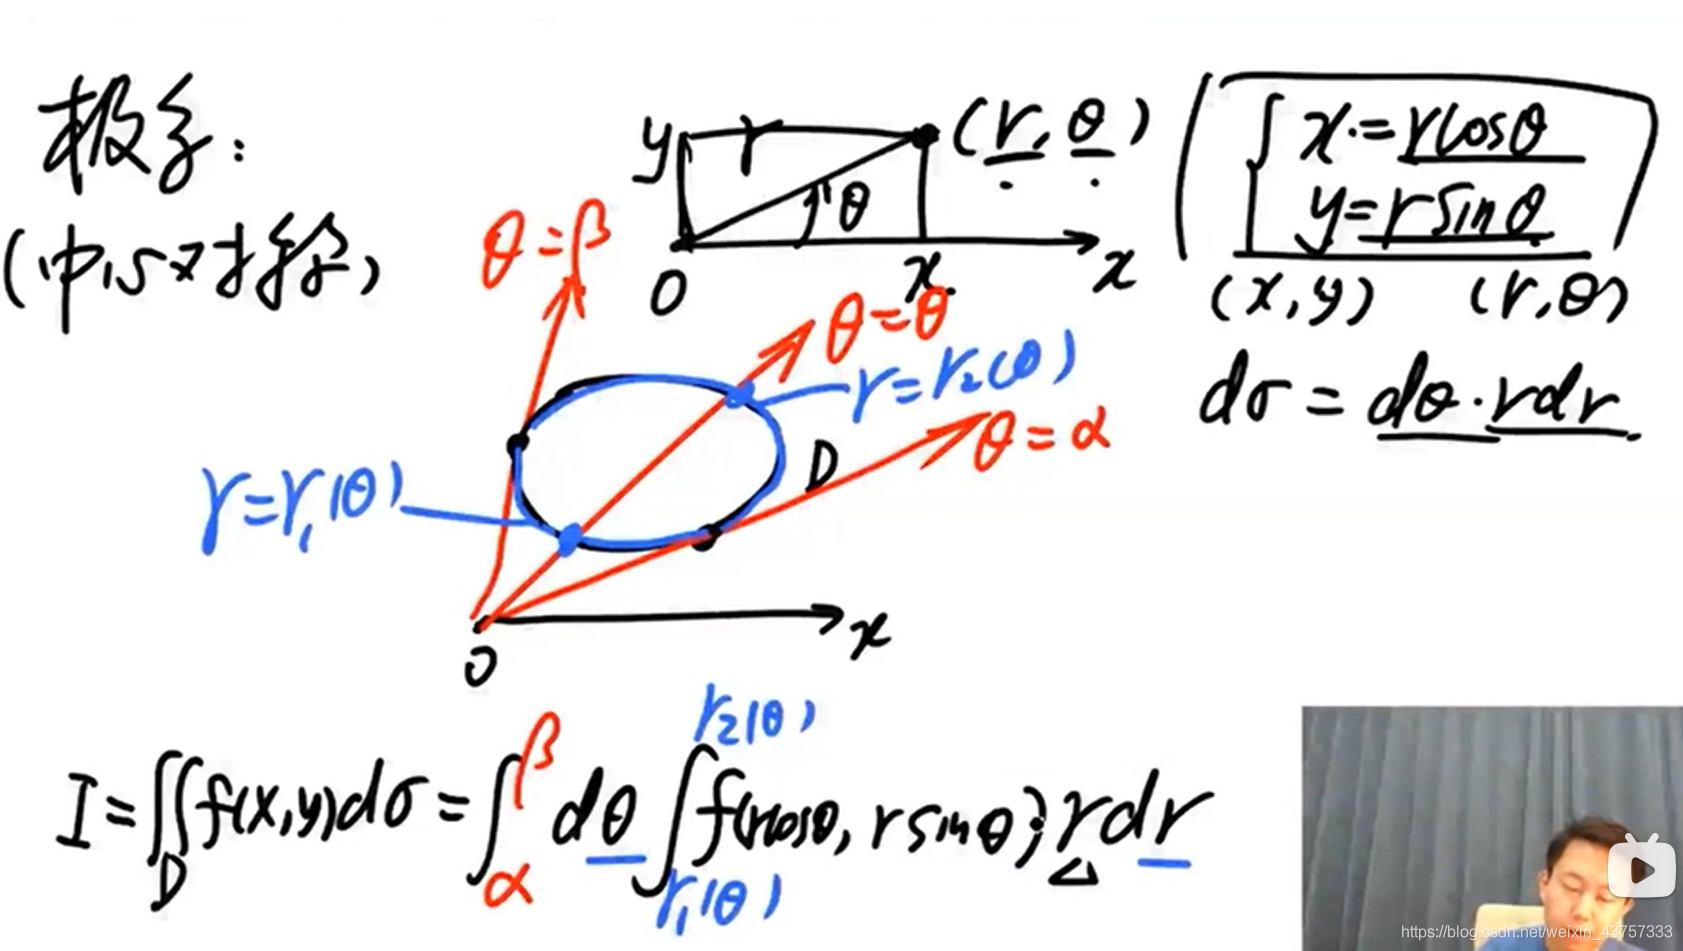 极系：
(中心对称)
y r (r, θ)
θ
O x x
{ x = rcosθ
y = rsinθ
(x, y) (r, θ)
dσ = dθ·rdr
θ = β
θ = θ
r = r₂(θ)
θ = α
D
r = r₁(θ)
O x
I = ∬_D f(x,y)dσ = ∫_α^β dθ ∫_{r₁(θ)}^{r₂(θ)} f(rcosθ, rsinθ)·rdr
https://blog.csdn.net/weixin_43757333